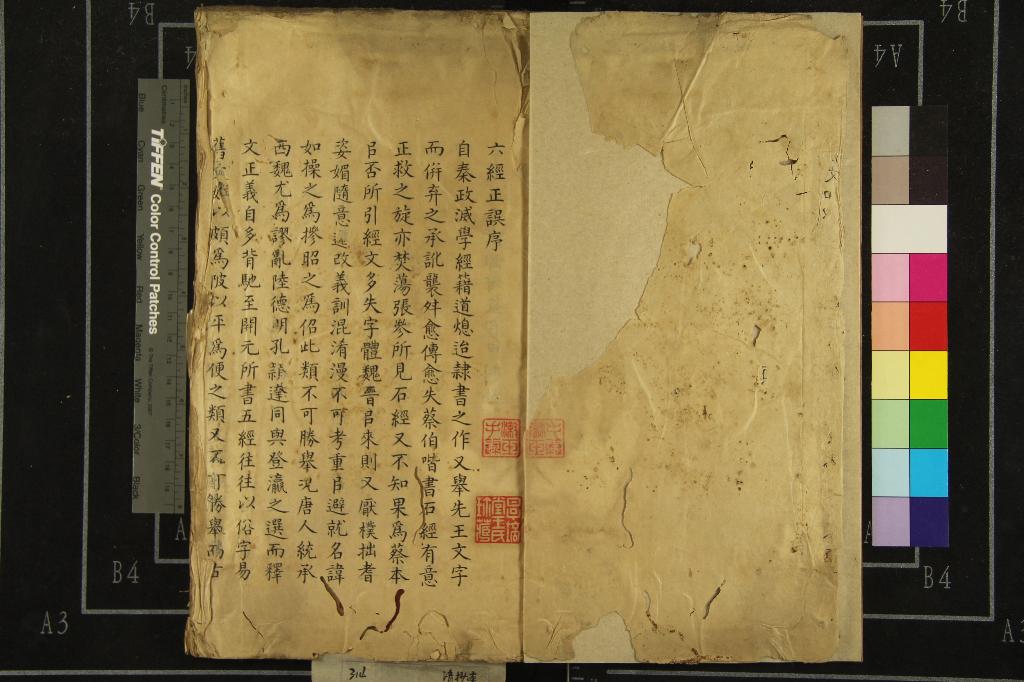 六經正誤序
自秦政滅學經籍道熄迨隸書之作又舉先王文字
而併弃之承訛襲舛愈傳愈失蔡伯喈書石經有意
正救之旋亦焚蕩張參所見石經又不知果為蔡本
㠯否所引經文多失字體魏晉㠯來則又厭樸拙耆
姿媚隨意遷改義訓混淆漫不可考重㠯避就名諱
如操之為摻昭之為佋此類不可勝舉況唐人統承
西魏尤為謬亂陸德明孔穎達同與登瀛之選而釋
文正義自多背馳至開元所書五經往往以俗字易
舊以頗為陂以平為便之類又不可勝舉而古
B4
A3
B4
A4
B4
A3
TIFFEN Color Control Patches
Blue
Cyan
Green
Yellow
Red
Magenta
White
3/Color
Black